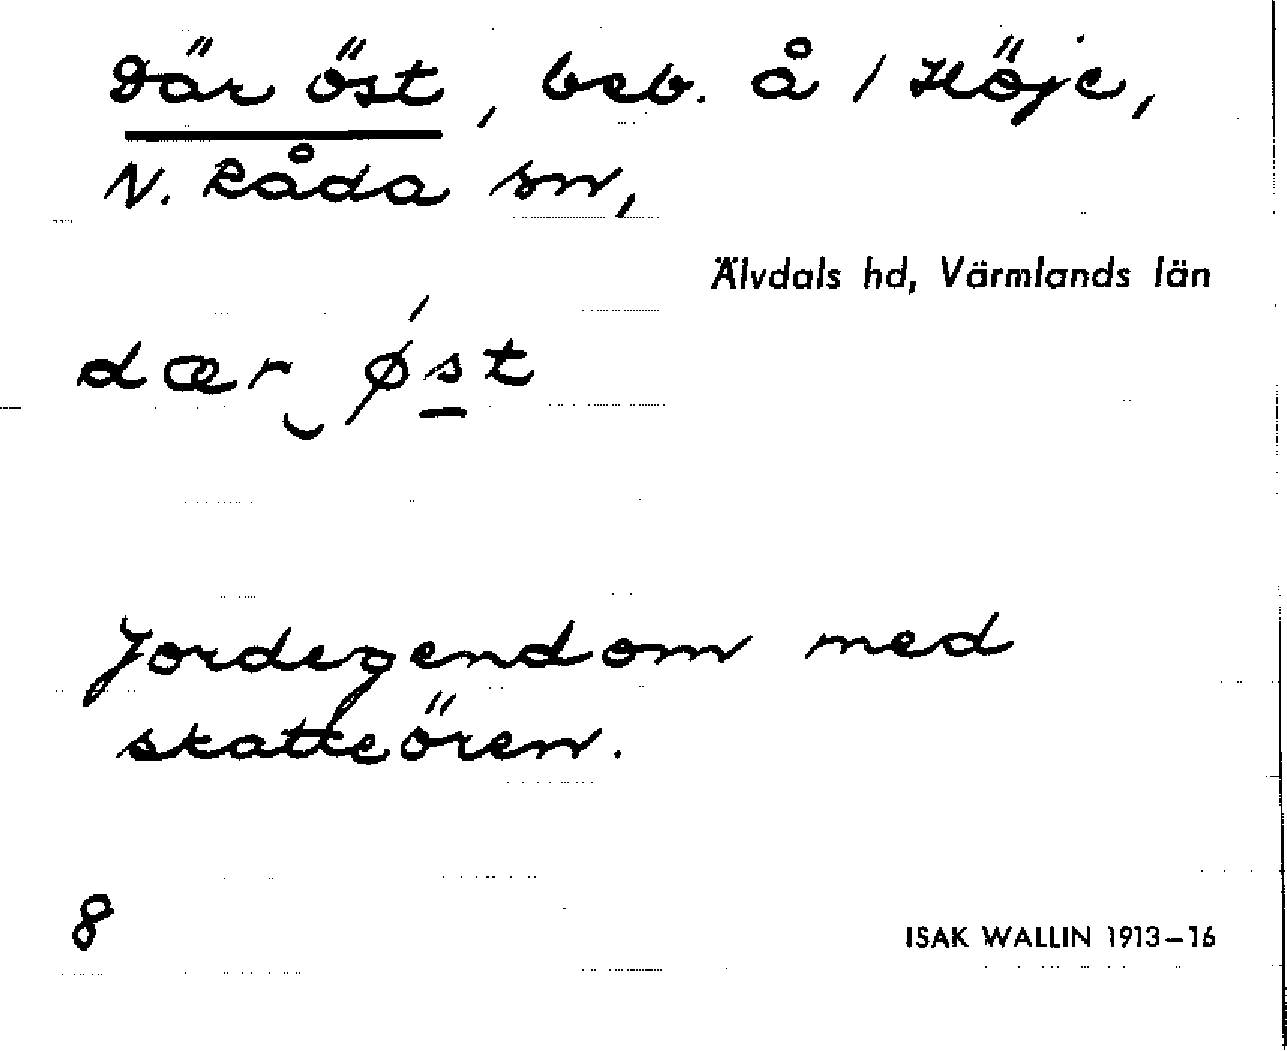 Där öst, beb. å / Höje,
N. Råda sn,
Älvdals hd, Värmlands län
dær‿ ǿst
Jordegendom med
skatteören.
8
ISAK WALLIN 1913–16